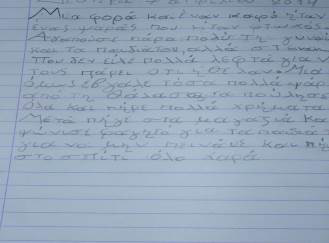 Μια φορά και έναν καιρό ήταν
ένας ψαράς που ήταν
Αγαπούσε πάρα πολύ τη γυναί
και τα παιδιά του, αλλά
που δεν είχε πολλά λεφτά για ν
τους πάρει ότι ήθελαν. Μια
όμως έβγαλε τόσα πολλά ψάρ
από τη θάλασσα, τα πούλησε
όλα και πήρε πολλά χρήματα
Μετά πήγε στα μαγαζιά κα
ψώνισε φαγητό για τα παιδιά
για να μην πεινάνε και πήγ
στο σπίτι όλο χαρά